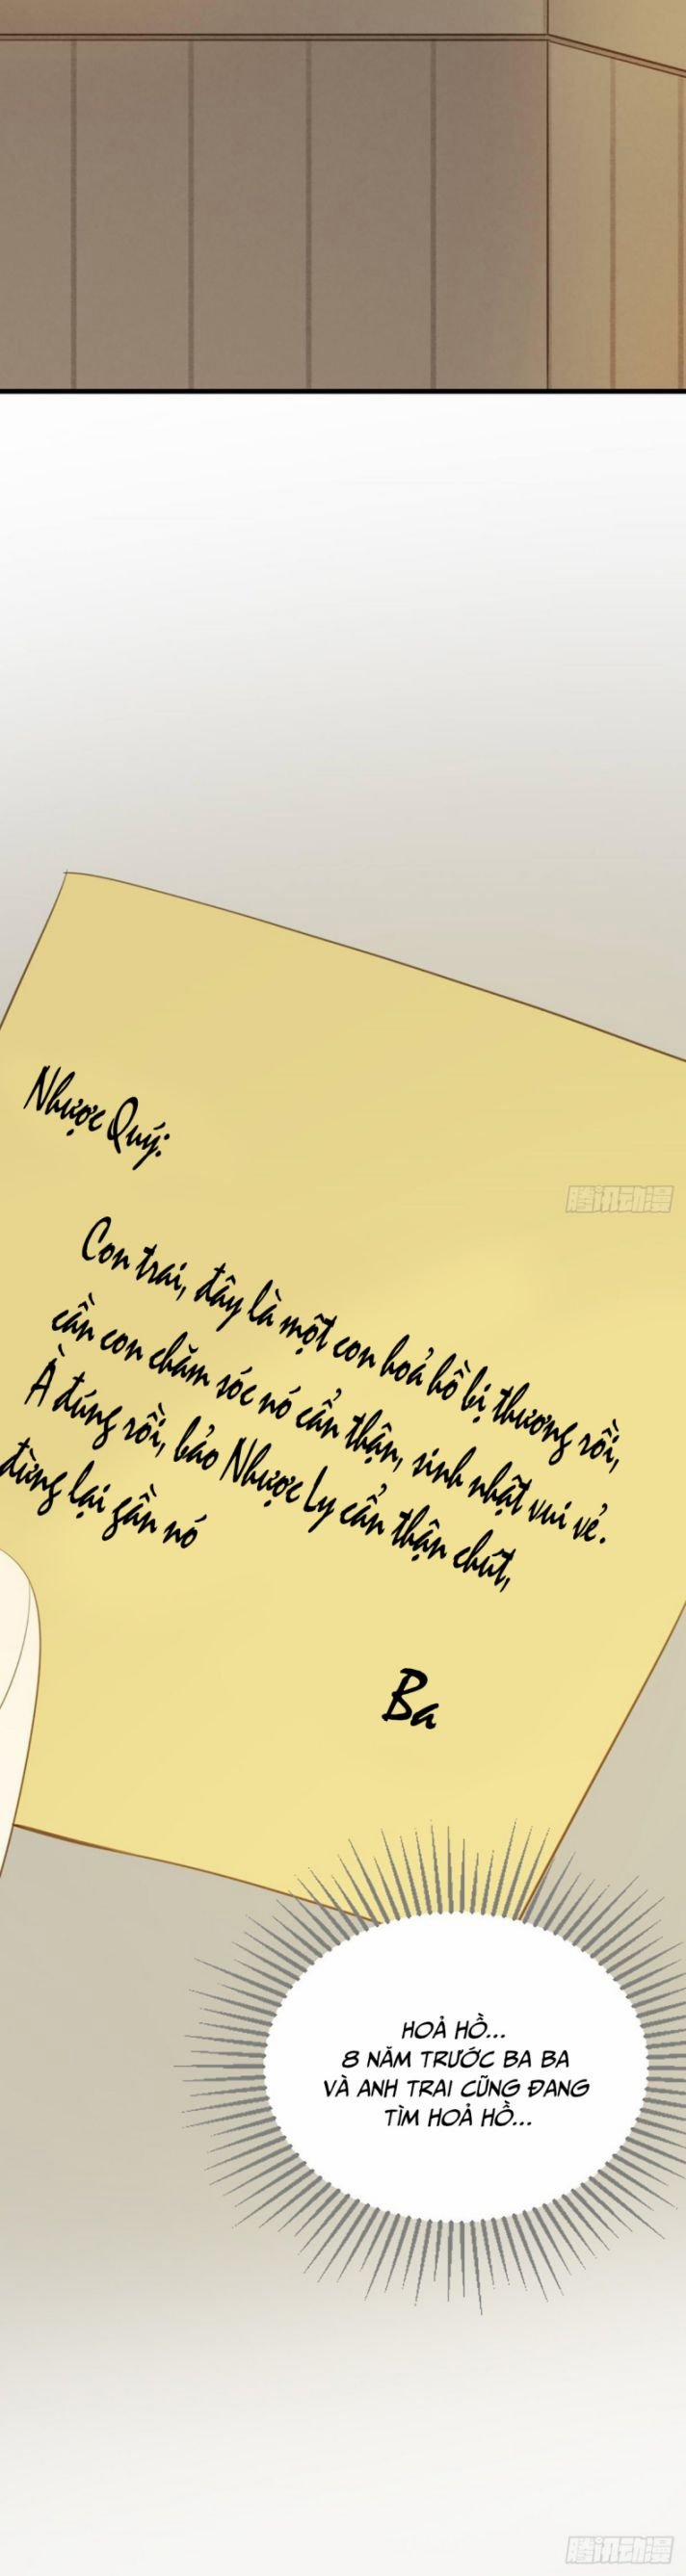 Nhược Quý:
腾讯动漫
Con trai, đây là một con hoả hồ bị thương rồi,
cần con chăm sóc nó cẩn thận, sinh nhật vui vẻ.
À đúng rồi, bảo Nhược Ly cẩn thận chút,
đừng lại gần nó
Ba
HOẢ HỒ...
8 NĂM TRƯỚC BA BA
VÀ ANH TRAI CŨNG ĐANG
TÌM HOẢ HỒ...
腾讯动漫